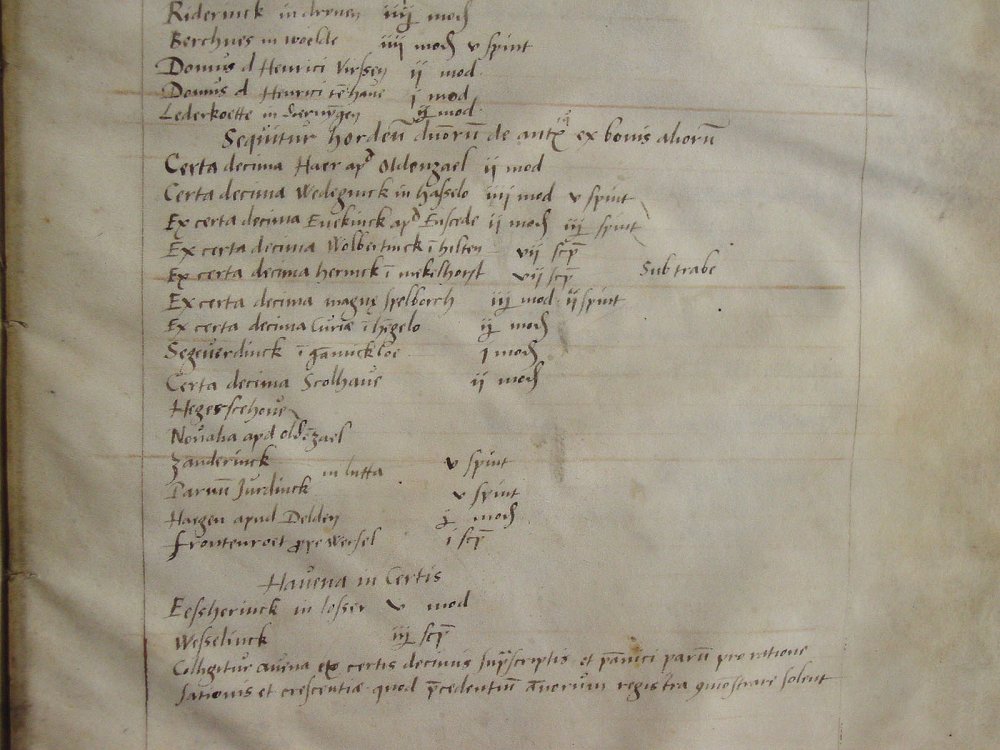 Riderinck in dronen iiij mod
Berchues in woelde iiij mod v spint
Domus d Henrici Vrssen ij mod
Domus d Henrici tēhaue i mod
Lederkoette in ij mod
Sequitur hordeū duorū de ex bonis aliorū
Certa decima Haer apd Oldenzael ij mod
Certa decima Wedeginck in hasselo iiij mod v spint
Ex certa decima Enekinck apd Enscede ij mod iij spint
Ex certa decima Wolbertinck ī hilten vij scp̄
Ex certa decima herinck ī mekelhorst vij scp̄ Sub trabe
Ex certa decima magnę spelborch iij mod ij spint
Ex certa decima Curiæ ī hēgelo ij mod
Segeuerdinck ī gāmickloe i mod
Certa decima Scolhaue ij mod
Hegerscehoue
Noualia apd oldēzael
Zanderinck v spint
in lutta
Paruū Jurdinck v spint
Hargen apud Delden i mod
Fronteuroet ꝓpe Wersel i scp̄
Hauena in Certis
Eessherinck in losser v mod
Wesselinck iij scp̄
Colligitur auena ex certis decimis suprascriptis et pānici parū pro ratione
sationis et crescentiæ quod p̄cedentiū ānorum registra mōstrare solent